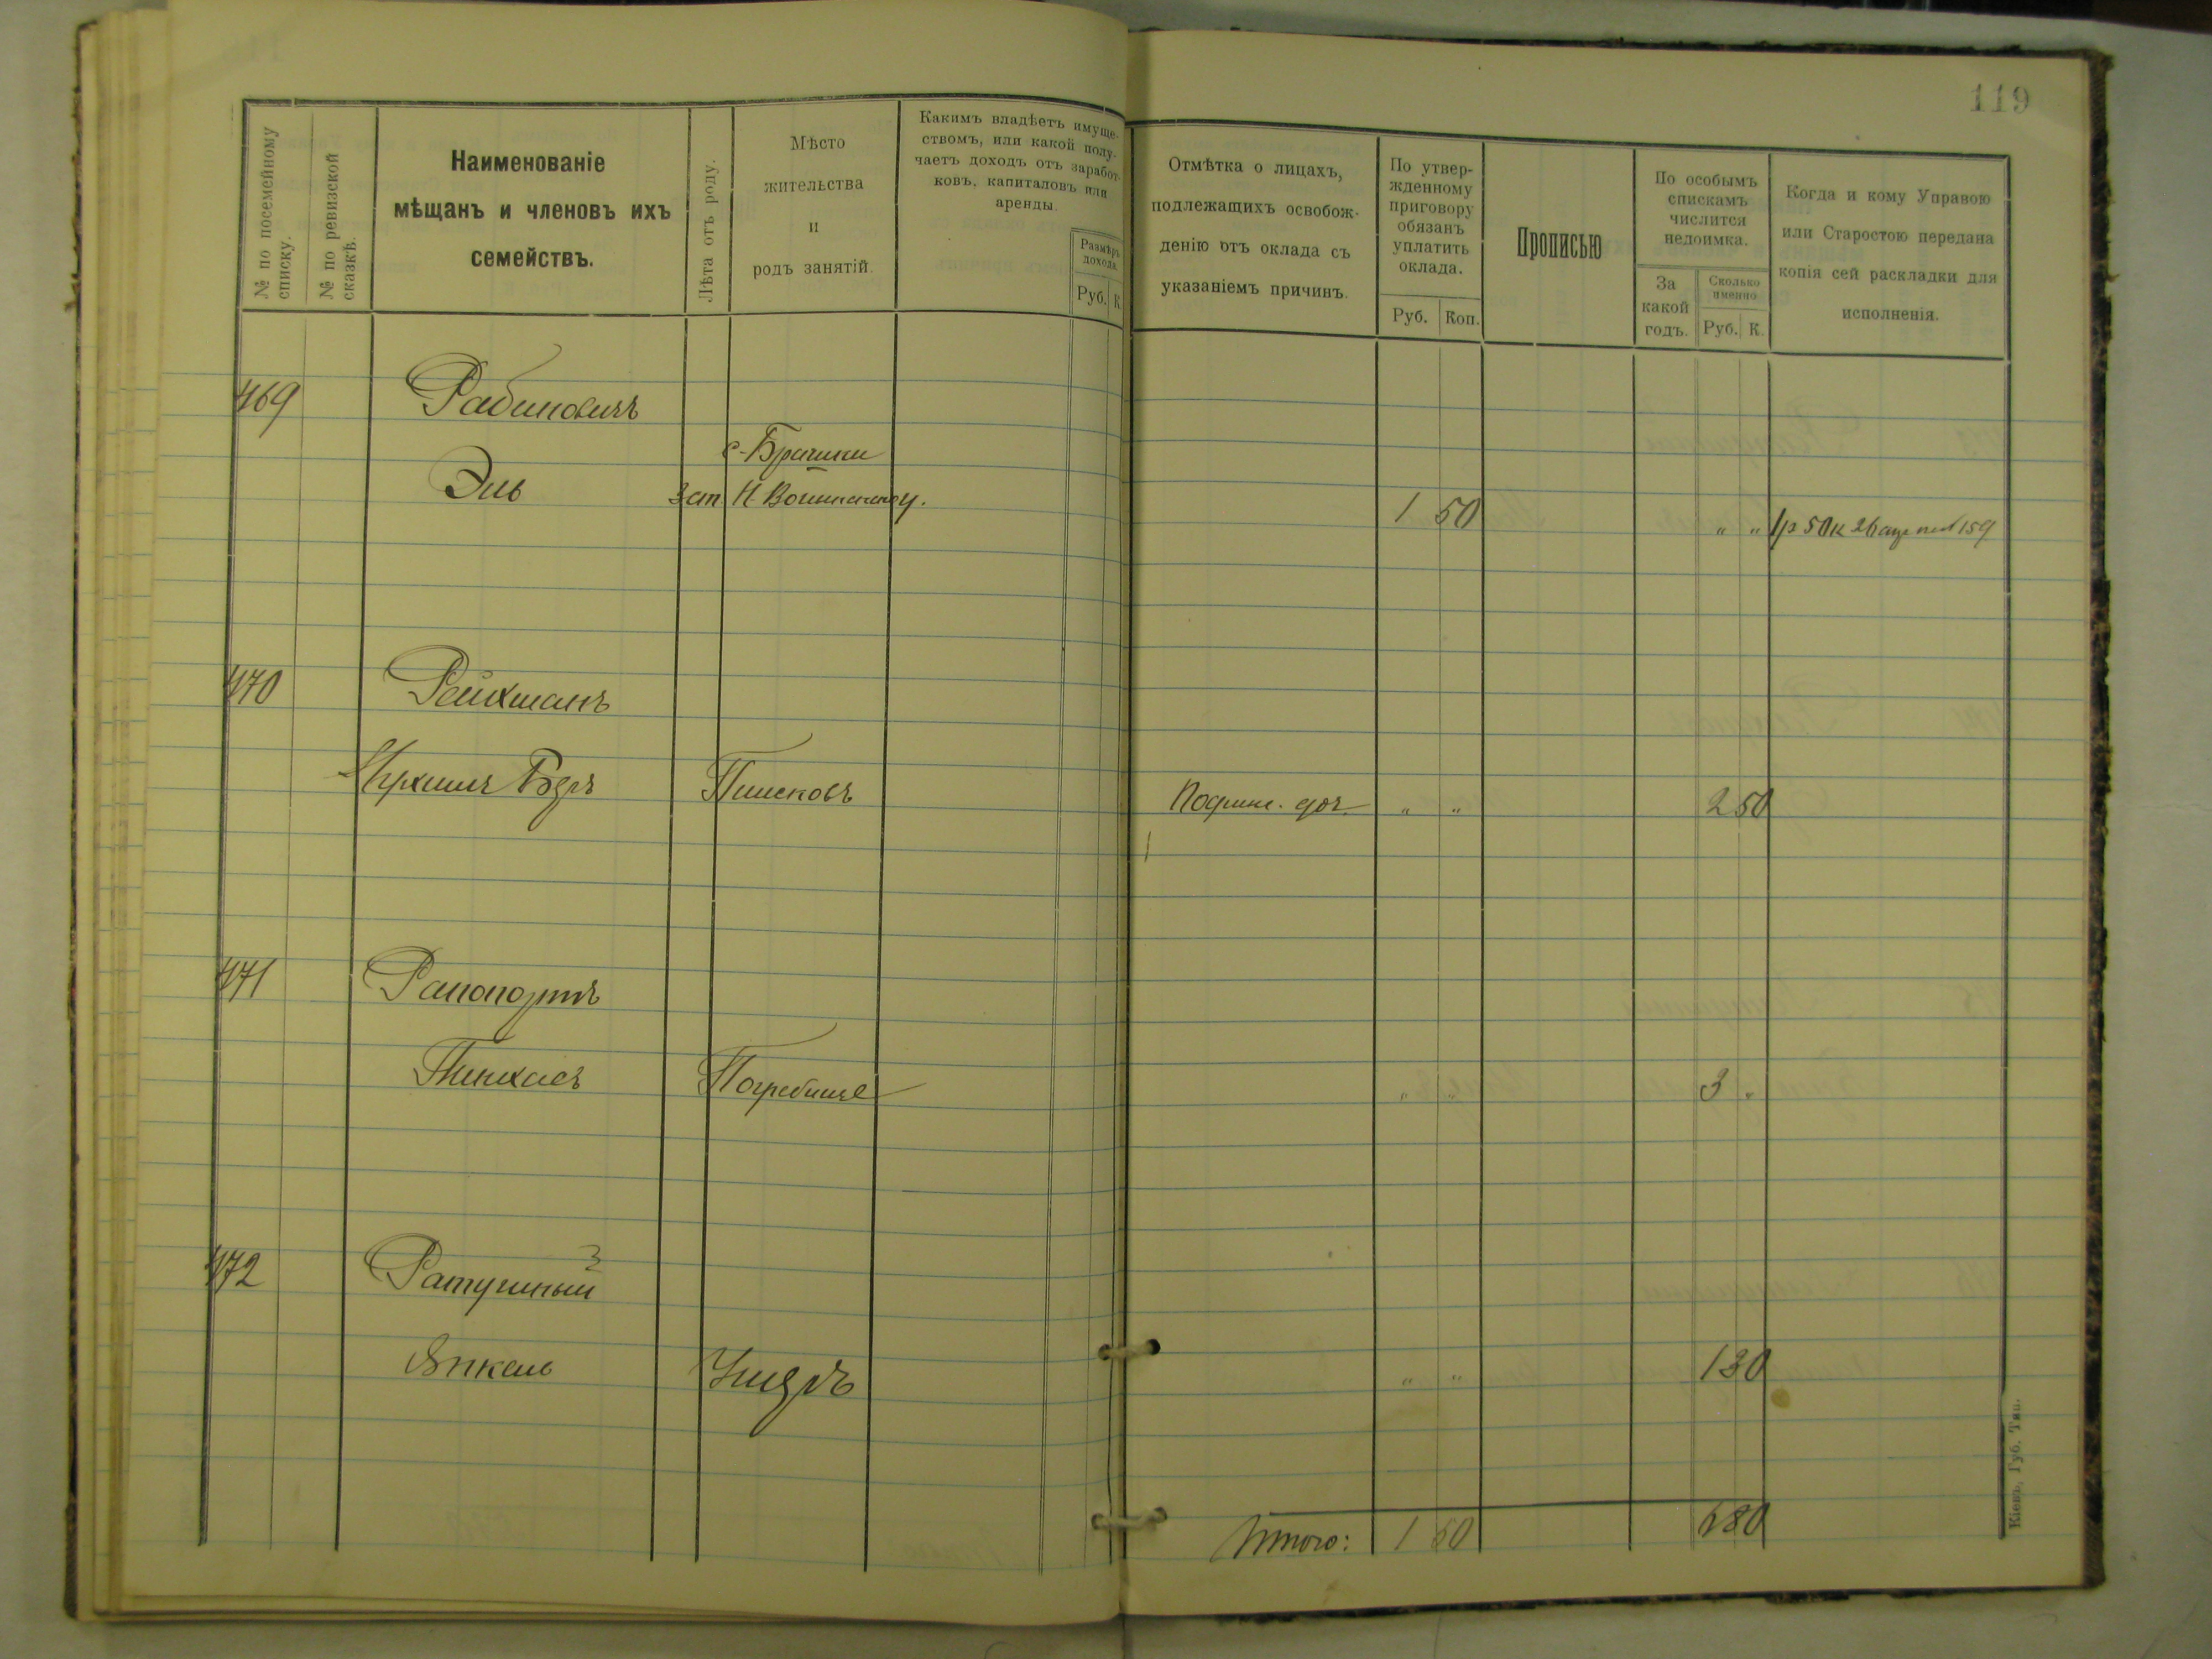 119
№ по посемейному списку.
№ по ревизской сказкѣ.
Наименованіе
мѣщанъ и членовъ ихъ
семействъ.
Лѣта отъ роду.
Мѣсто
жительства
и
родъ занятій.
Какимъ владѣетъ имуще-
ствомъ, или какой полу-
чаетъ доходъ отъ заработ-
ковъ, капиталовъ или
аренды.
Размѣръ
дохода.
Руб. К.
Отмѣтка о лицахъ,
подлежащихъ освобож-
денію отъ оклада съ
указаніемъ причинъ.
По утвер-
жденному
приговору
обязанъ
уплатить
оклада.
Руб. Коп.
Прописью
По особымъ
спискамъ
числится
недоимка.
За
какой
годъ.
Сколько
именно
Руб. К.
Когда и кому Управою
или Старостою передана
копія сей раскладки для
исполненія.
469 Рабиновичъ
с. Брачики
Эль 1 50 " " 1р 50к 159
470 Рейхманъ
Бэръ Писковъ " " 2 50
471 Рапопортъ
Пинхасъ Погребище " " 3 "
472 Ратушный
Янкель " " 1 30
Итого: 1 50 6 80
Кіевъ, Губ. Тип.